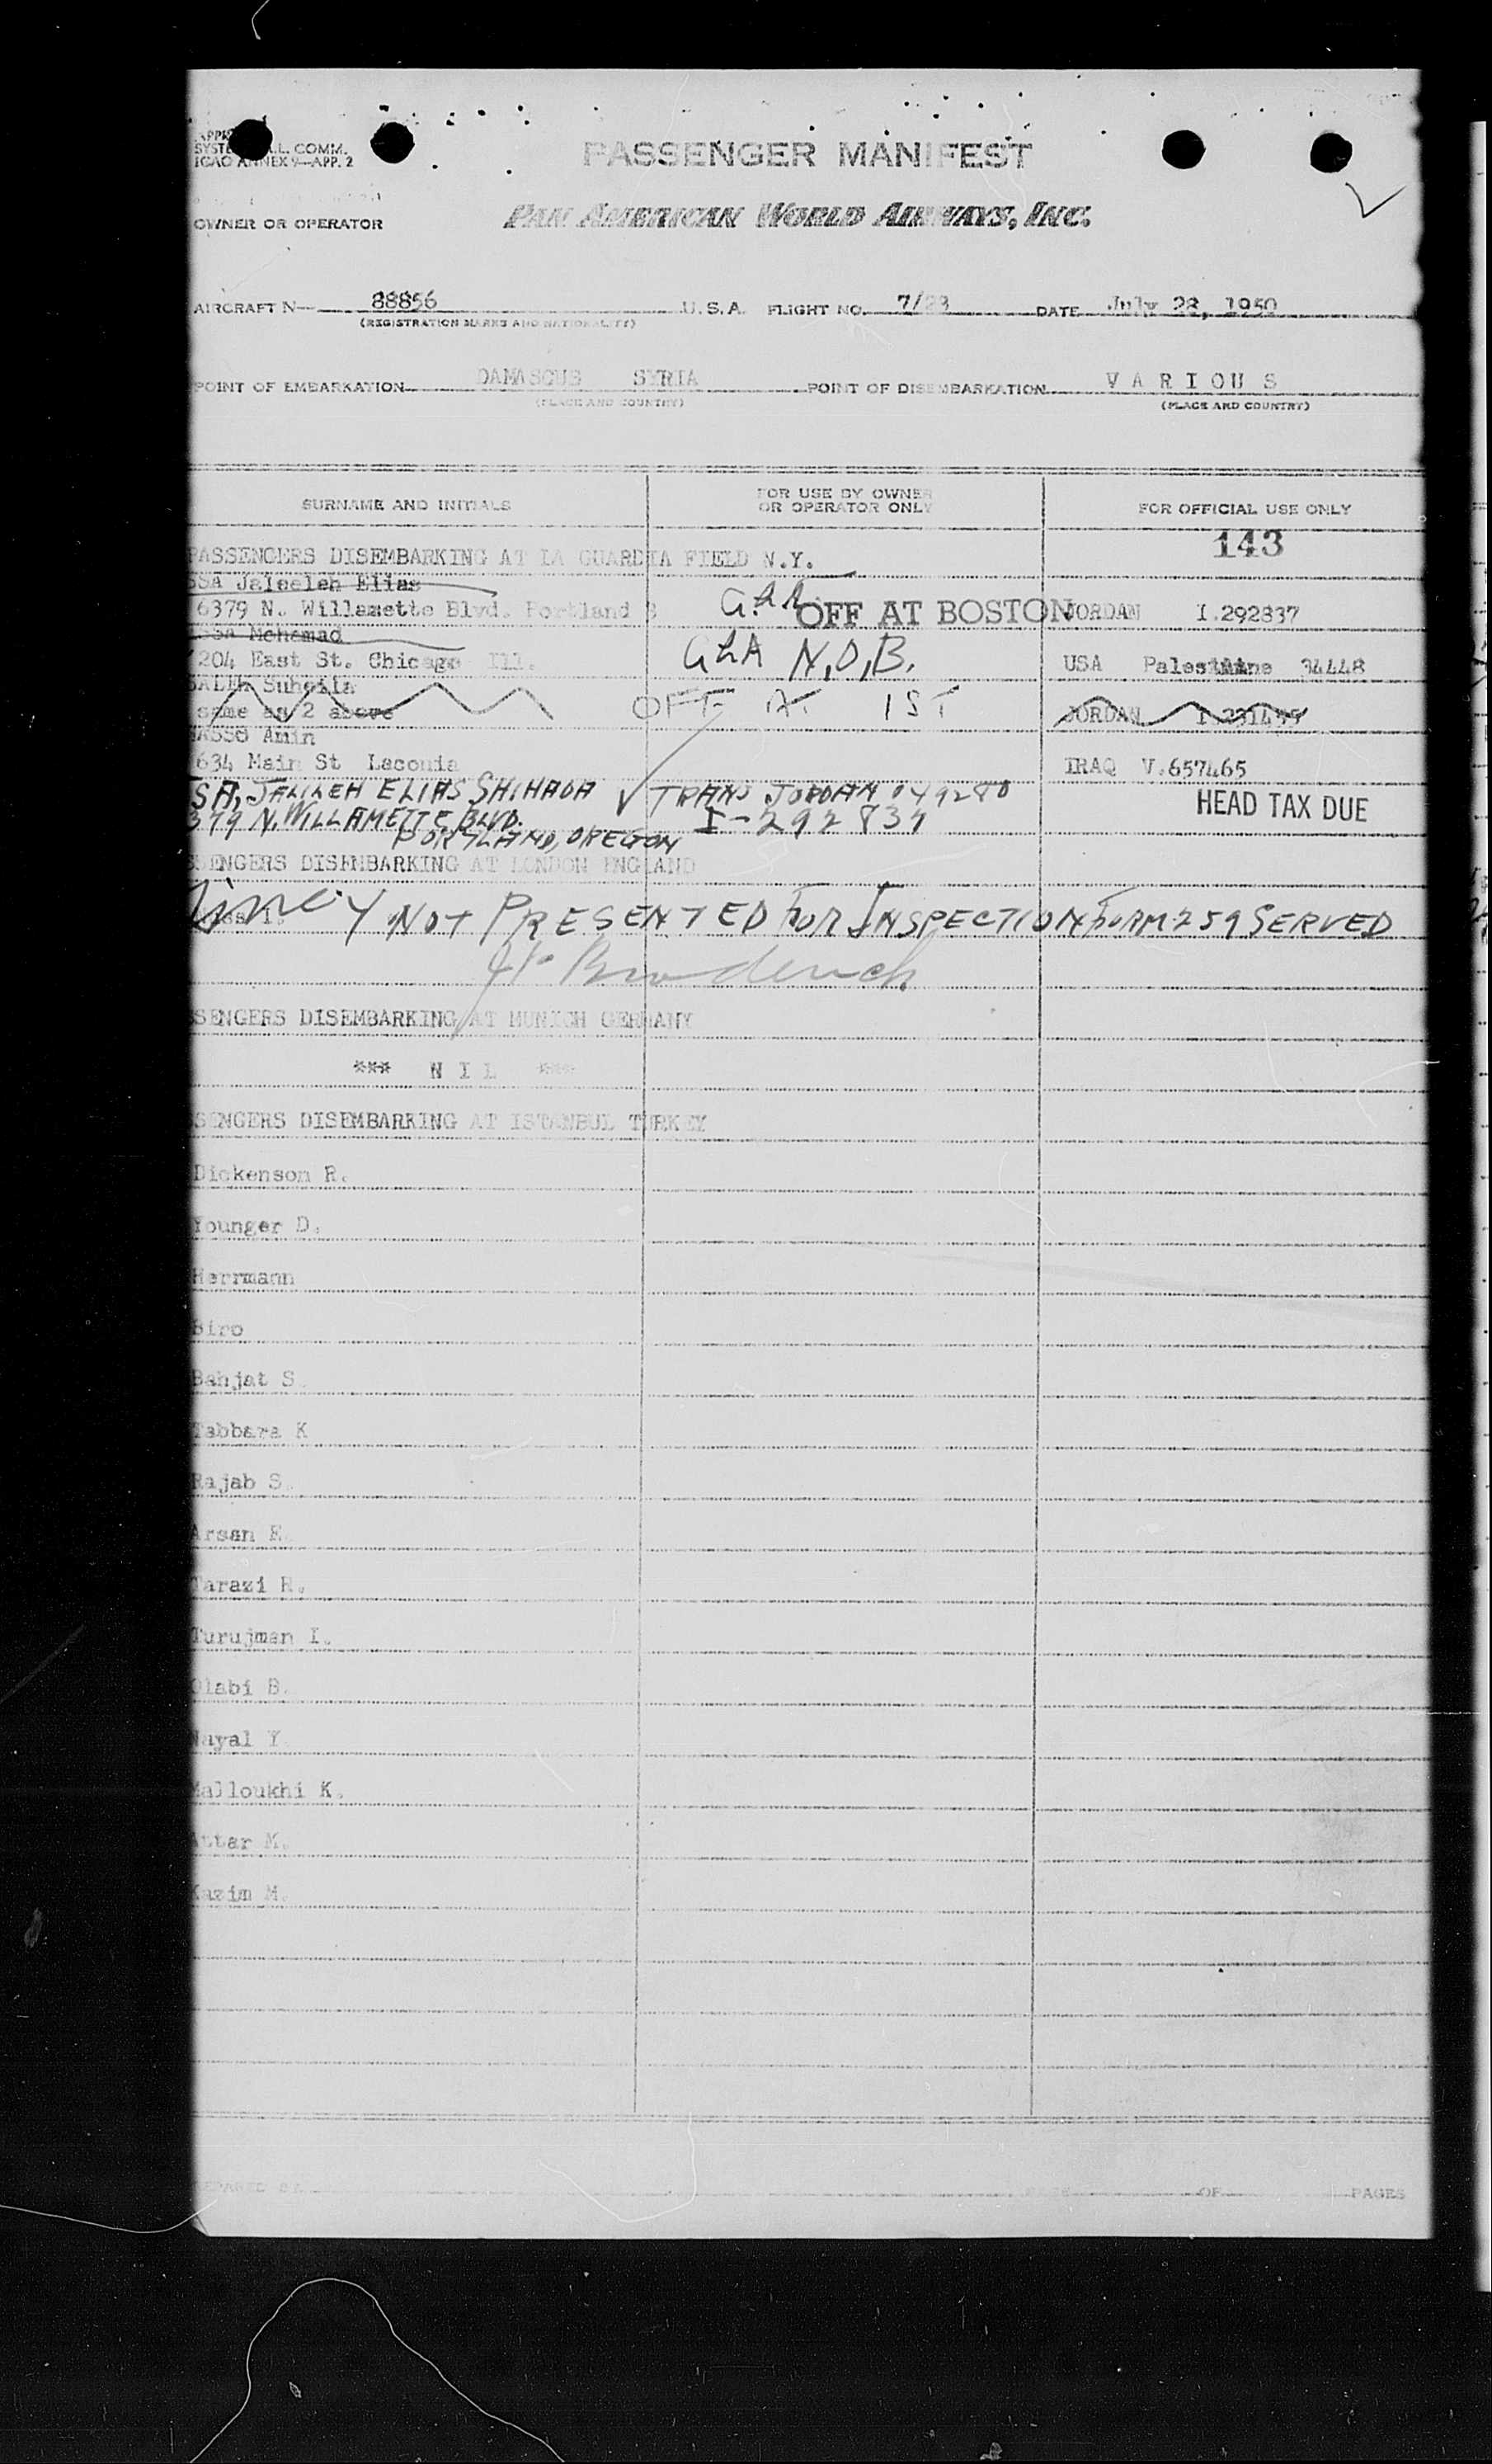 L. COMM.
ICAO ANNEX 9—APP. 2
PASSENGER MANIFEST
OWNER OR OPERATOR PAN AMERICAN WORLD AIRWAYS, INC.
AIRCRAFT N— 88856 U.S.A. FLIGHT NO. 7/28 DATE July 28, 1950
(REGISTRATION MARKS AND NATIONALITY)
POINT OF EMBARKATION DAMASCUS SYRIA POINT OF DISEMBARKATION V A R I O U S
(PLACE AND COUNTRY) (PLACE AND COUNTRY)
SURNAME AND INITIALS FOR USE BY OWNER OR OPERATOR ONLY FOR OFFICIAL USE ONLY
143
PASSENGERS DISEMBARKING AT LA GUARDIA FIELD N.Y.
SSA Jaleeleh Elias
6379 N. Willamette Blvd. Portland 8 OFF AT BOSTON JORDAN I.292837
Mohamad
204 East St. Chicago Ill. GLA N.O.B. USA Palestine 34448
SALEH Suheila
same as 2 above OFF AT IST JORDAN
Amin
634 Main St Laconia IRAQ V.657465
SA, JALILEH ELIAS SHIHADA TRANS JORDAN 049280 HEAD TAX DUE
379 N. WILLAMETTE BLVD. I-292837
PORTLAND, OREGON
SENGERS DISEMBARKING AT LONDON ENGLAND
NOT PRESENTED FOR INSPECTION FORM 259 SERVED
SENGERS DISEMBARKING AT MUNICH GERMANY
*** N I L ***
SENGERS DISEMBARKING AT ISTANBUL TURKEY
Dickenson R.
Younger D.
Herrmann
Biro
Bahjat S.
Tabbara K
Rajab S.
Arsan E.
Tarazi R.
Turujman I.
Olabi B.
Nayal Y
Malloukhi K.
Attar M.
Kazim M.
OF PAGES